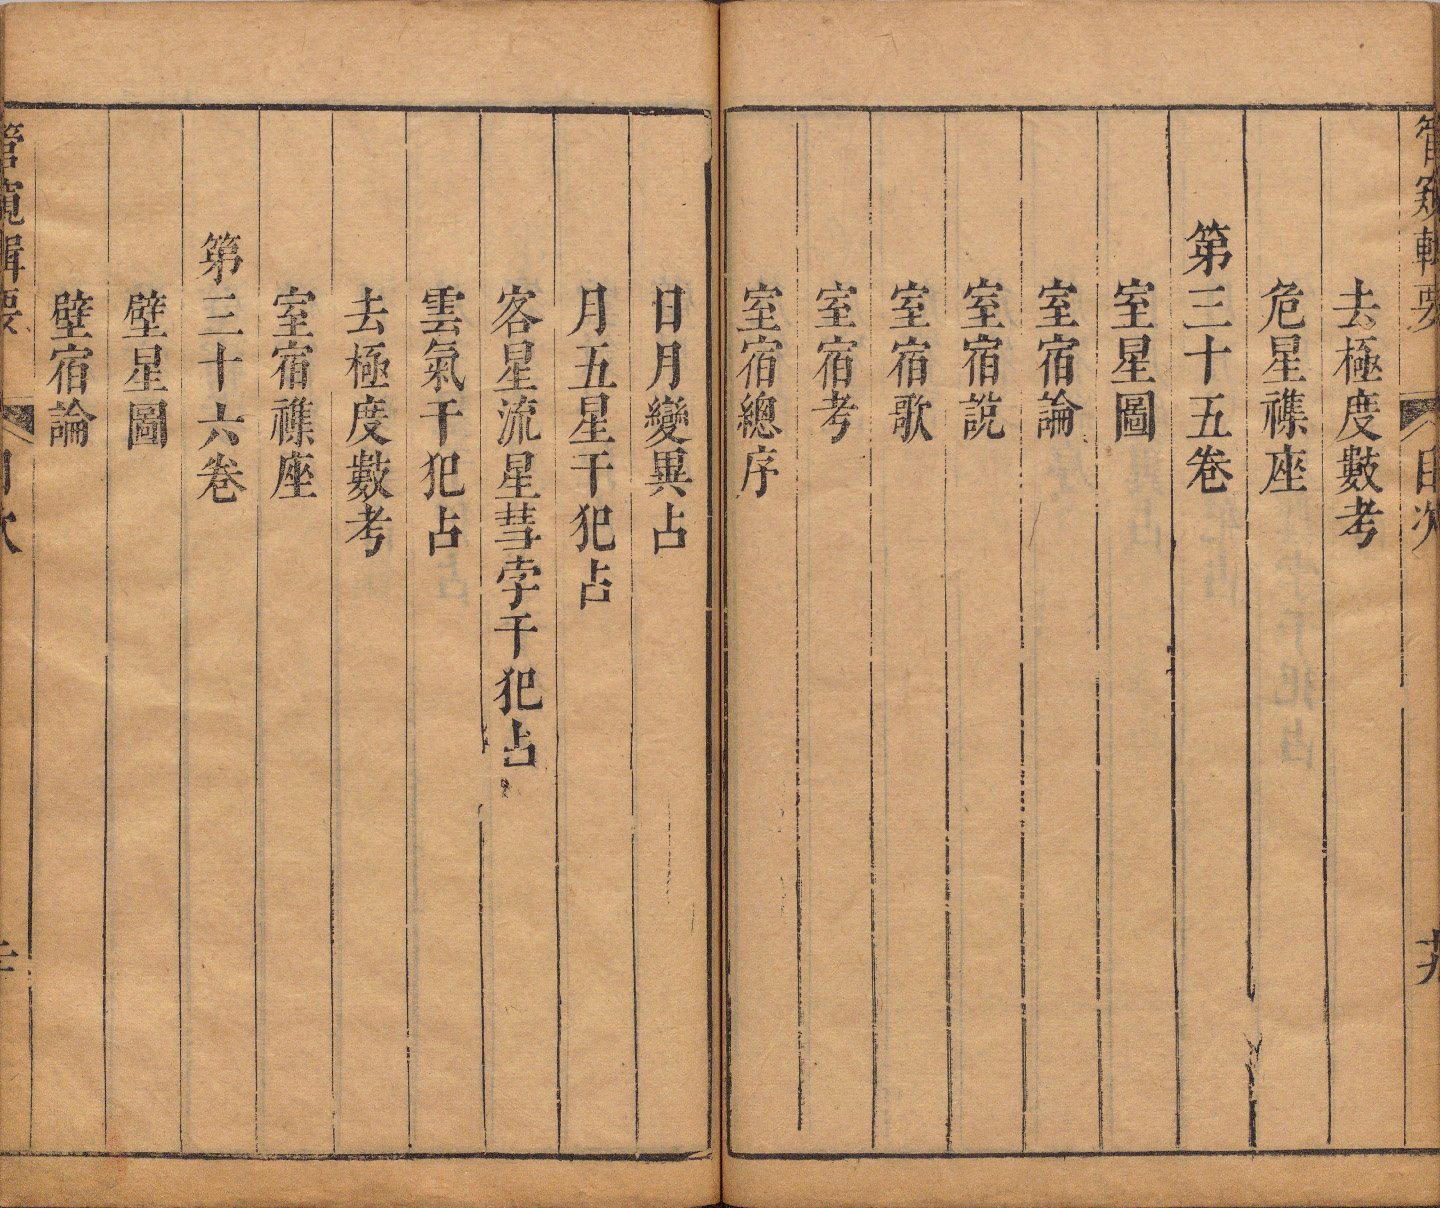 管窺輯要
目次
去極度數考
危星襍座
第三十五卷
室星圖
室宿論
室宿說
室宿歌
室宿考
室宿總序
日月變異占
月五星干犯占
客星流星彗孛干犯占
雲氣干犯占
去極度數考
室宿襍座
第三十六卷
壁星圖
壁宿論
管窺輯要
目次